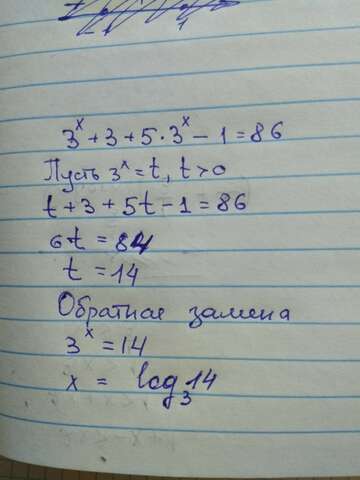 3ˣ + 3 + 5 · 3ˣ − 1 = 86
Пусть 3ˣ = t, t > 0
t + 3 + 5t − 1 = 86
6t = 84
t = 14
Обратная замена
3ˣ = 14
x = log₃14